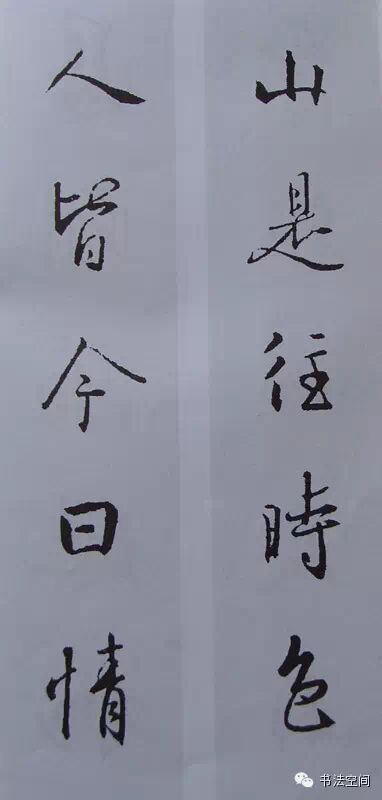 山是往時色
人皆今日情
书法空间